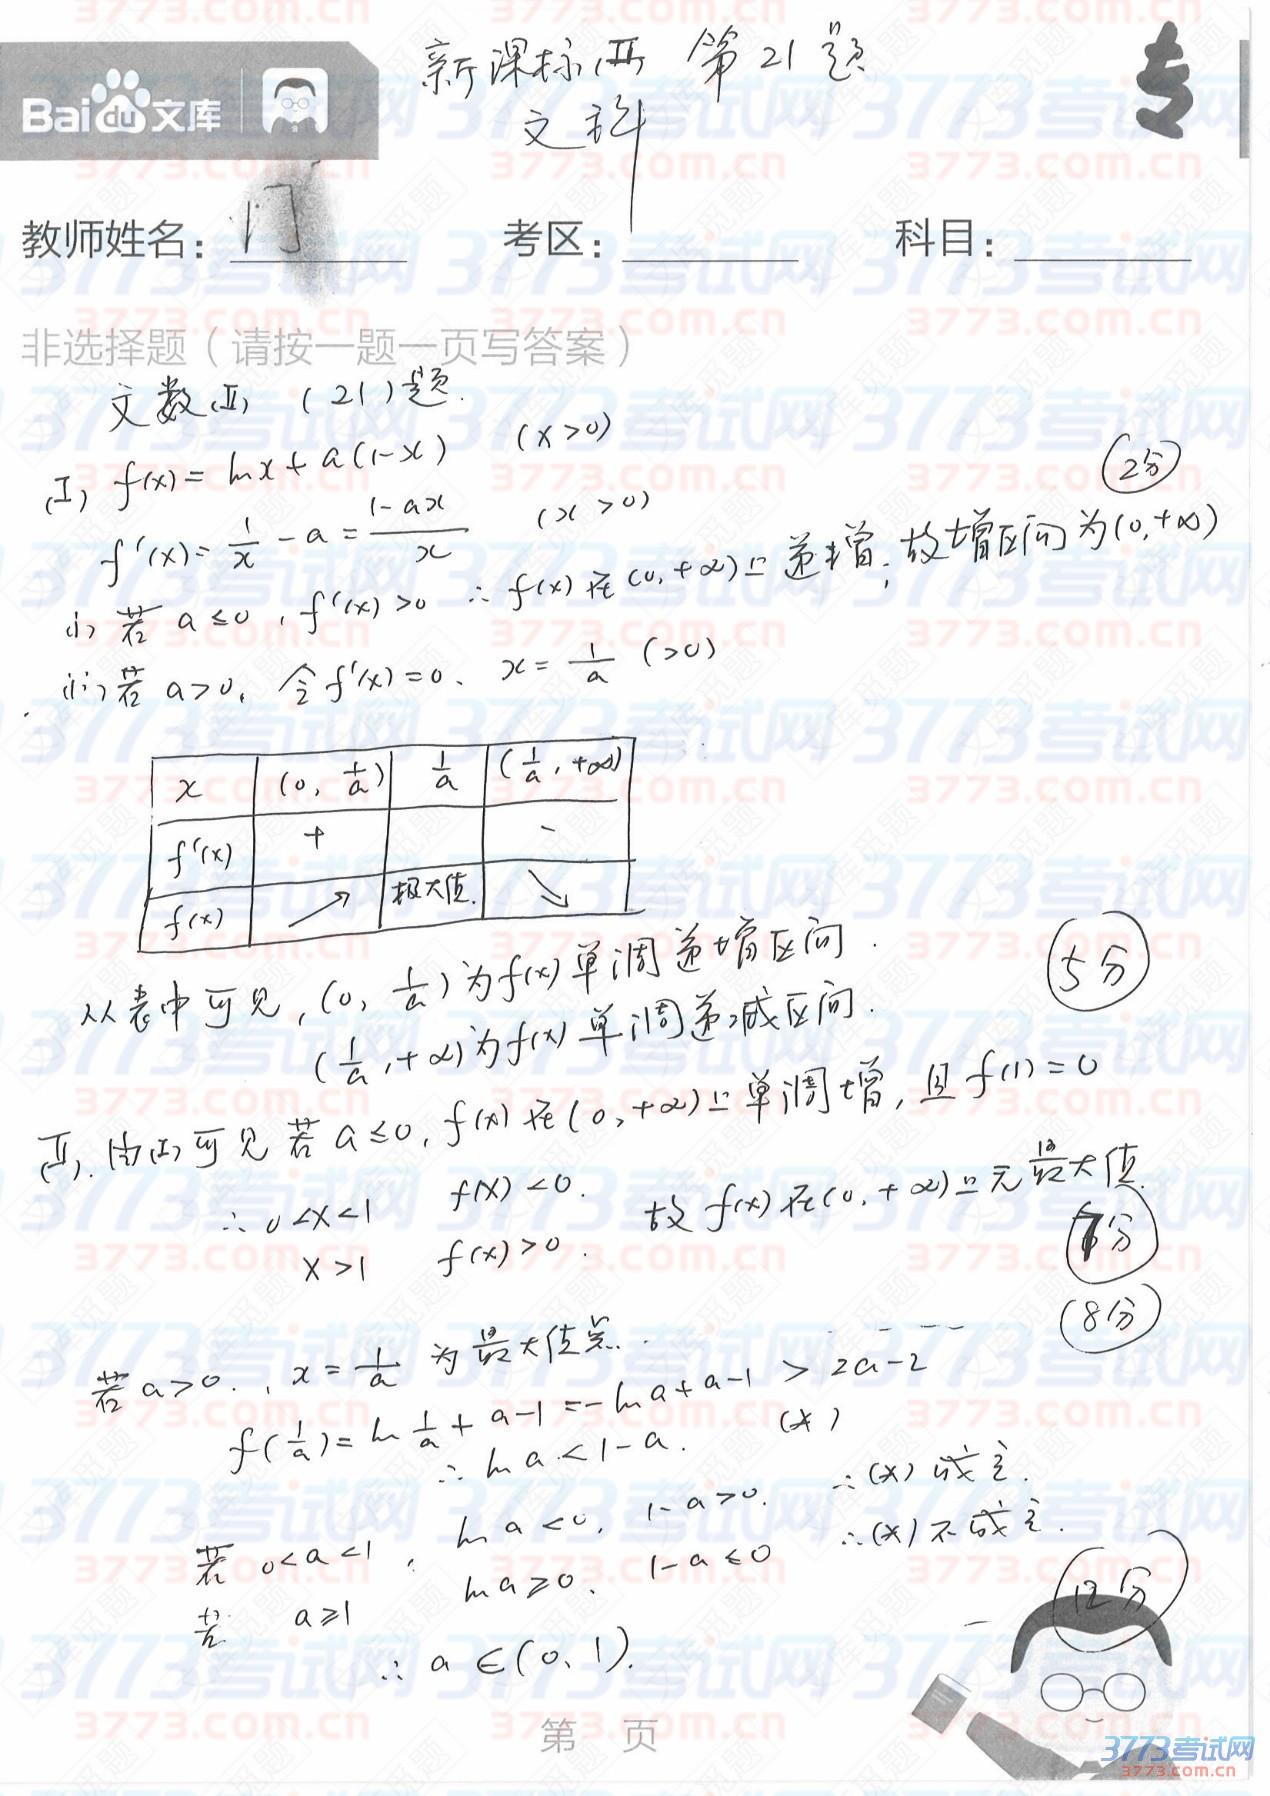 新课标(II) 第21题
文科
专
Baidu文库
教师姓名: 门 考区: 科目:
非选择题(请按一题一页写答案)
文数(II) (21)题.
(I) f(x)=lnx+a(1-x) (x>0)
f'(x)=1/x-a=(1-ax)/x (x>0) (2分)
(i) 若 a≤0, f'(x)>0 ∴f(x)在(0,+∞)上递增, 故增区间为(0,+∞)
(ii) 若 a>0, 令f'(x)=0、 x=1/a (>0)
x (0, 1/a) 1/a (1/a, +∞)
f'(x) + -
f(x) ↗ 极大值. ↘
从表中可见, (0, 1/a)为f(x)单调递增区间. (5分)
(1/a, +∞)为f(x)单调递减区间.
II. 由(I)可见 若 a≤0, f(x)在(0,+∞)上单调增, 且f(1)=0
∴0<x<1 f(x)<0. 故f(x)在(0,+∞)上无最大值.
x>1 f(x)>0. (7分)
(8分)
若a>0., x=1/a 为最大值点.
f(1/a)=ln1/a+a-1=-lna+a-1>2a-2
∴lna<1-a. (*)
若 0<a<1, lna<0, 1-a>0. ∴(*)成立.
若 a≥1 lna≥0. 1-a≤0 ∴(*)不成立.
(12分)
∴a∈(0,1).
第 页
3773考试网
3773.com.cn